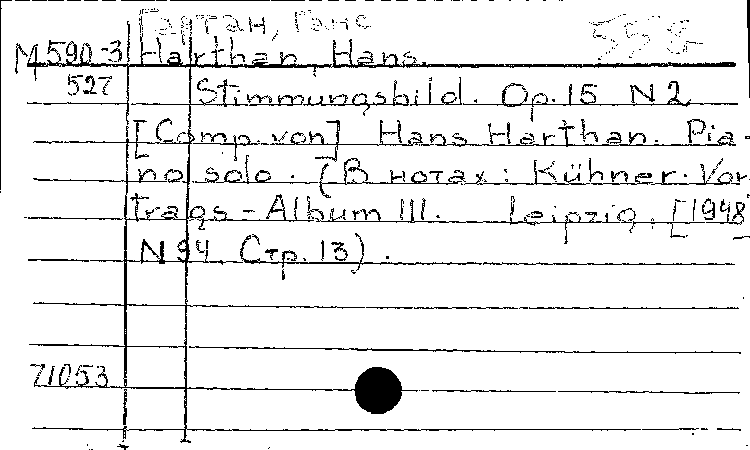 Гартан, Ганс 558
М590-3 Harthan, Hans.
527 Stimmungsbild. Op. 15 N 2
[Comp. von] Hans Harthan. Pia-
no solo. (В нотах: Kühner. Vor
trags-Album III. Leipzig, [1948]
N 94. Стр. 13).
71053